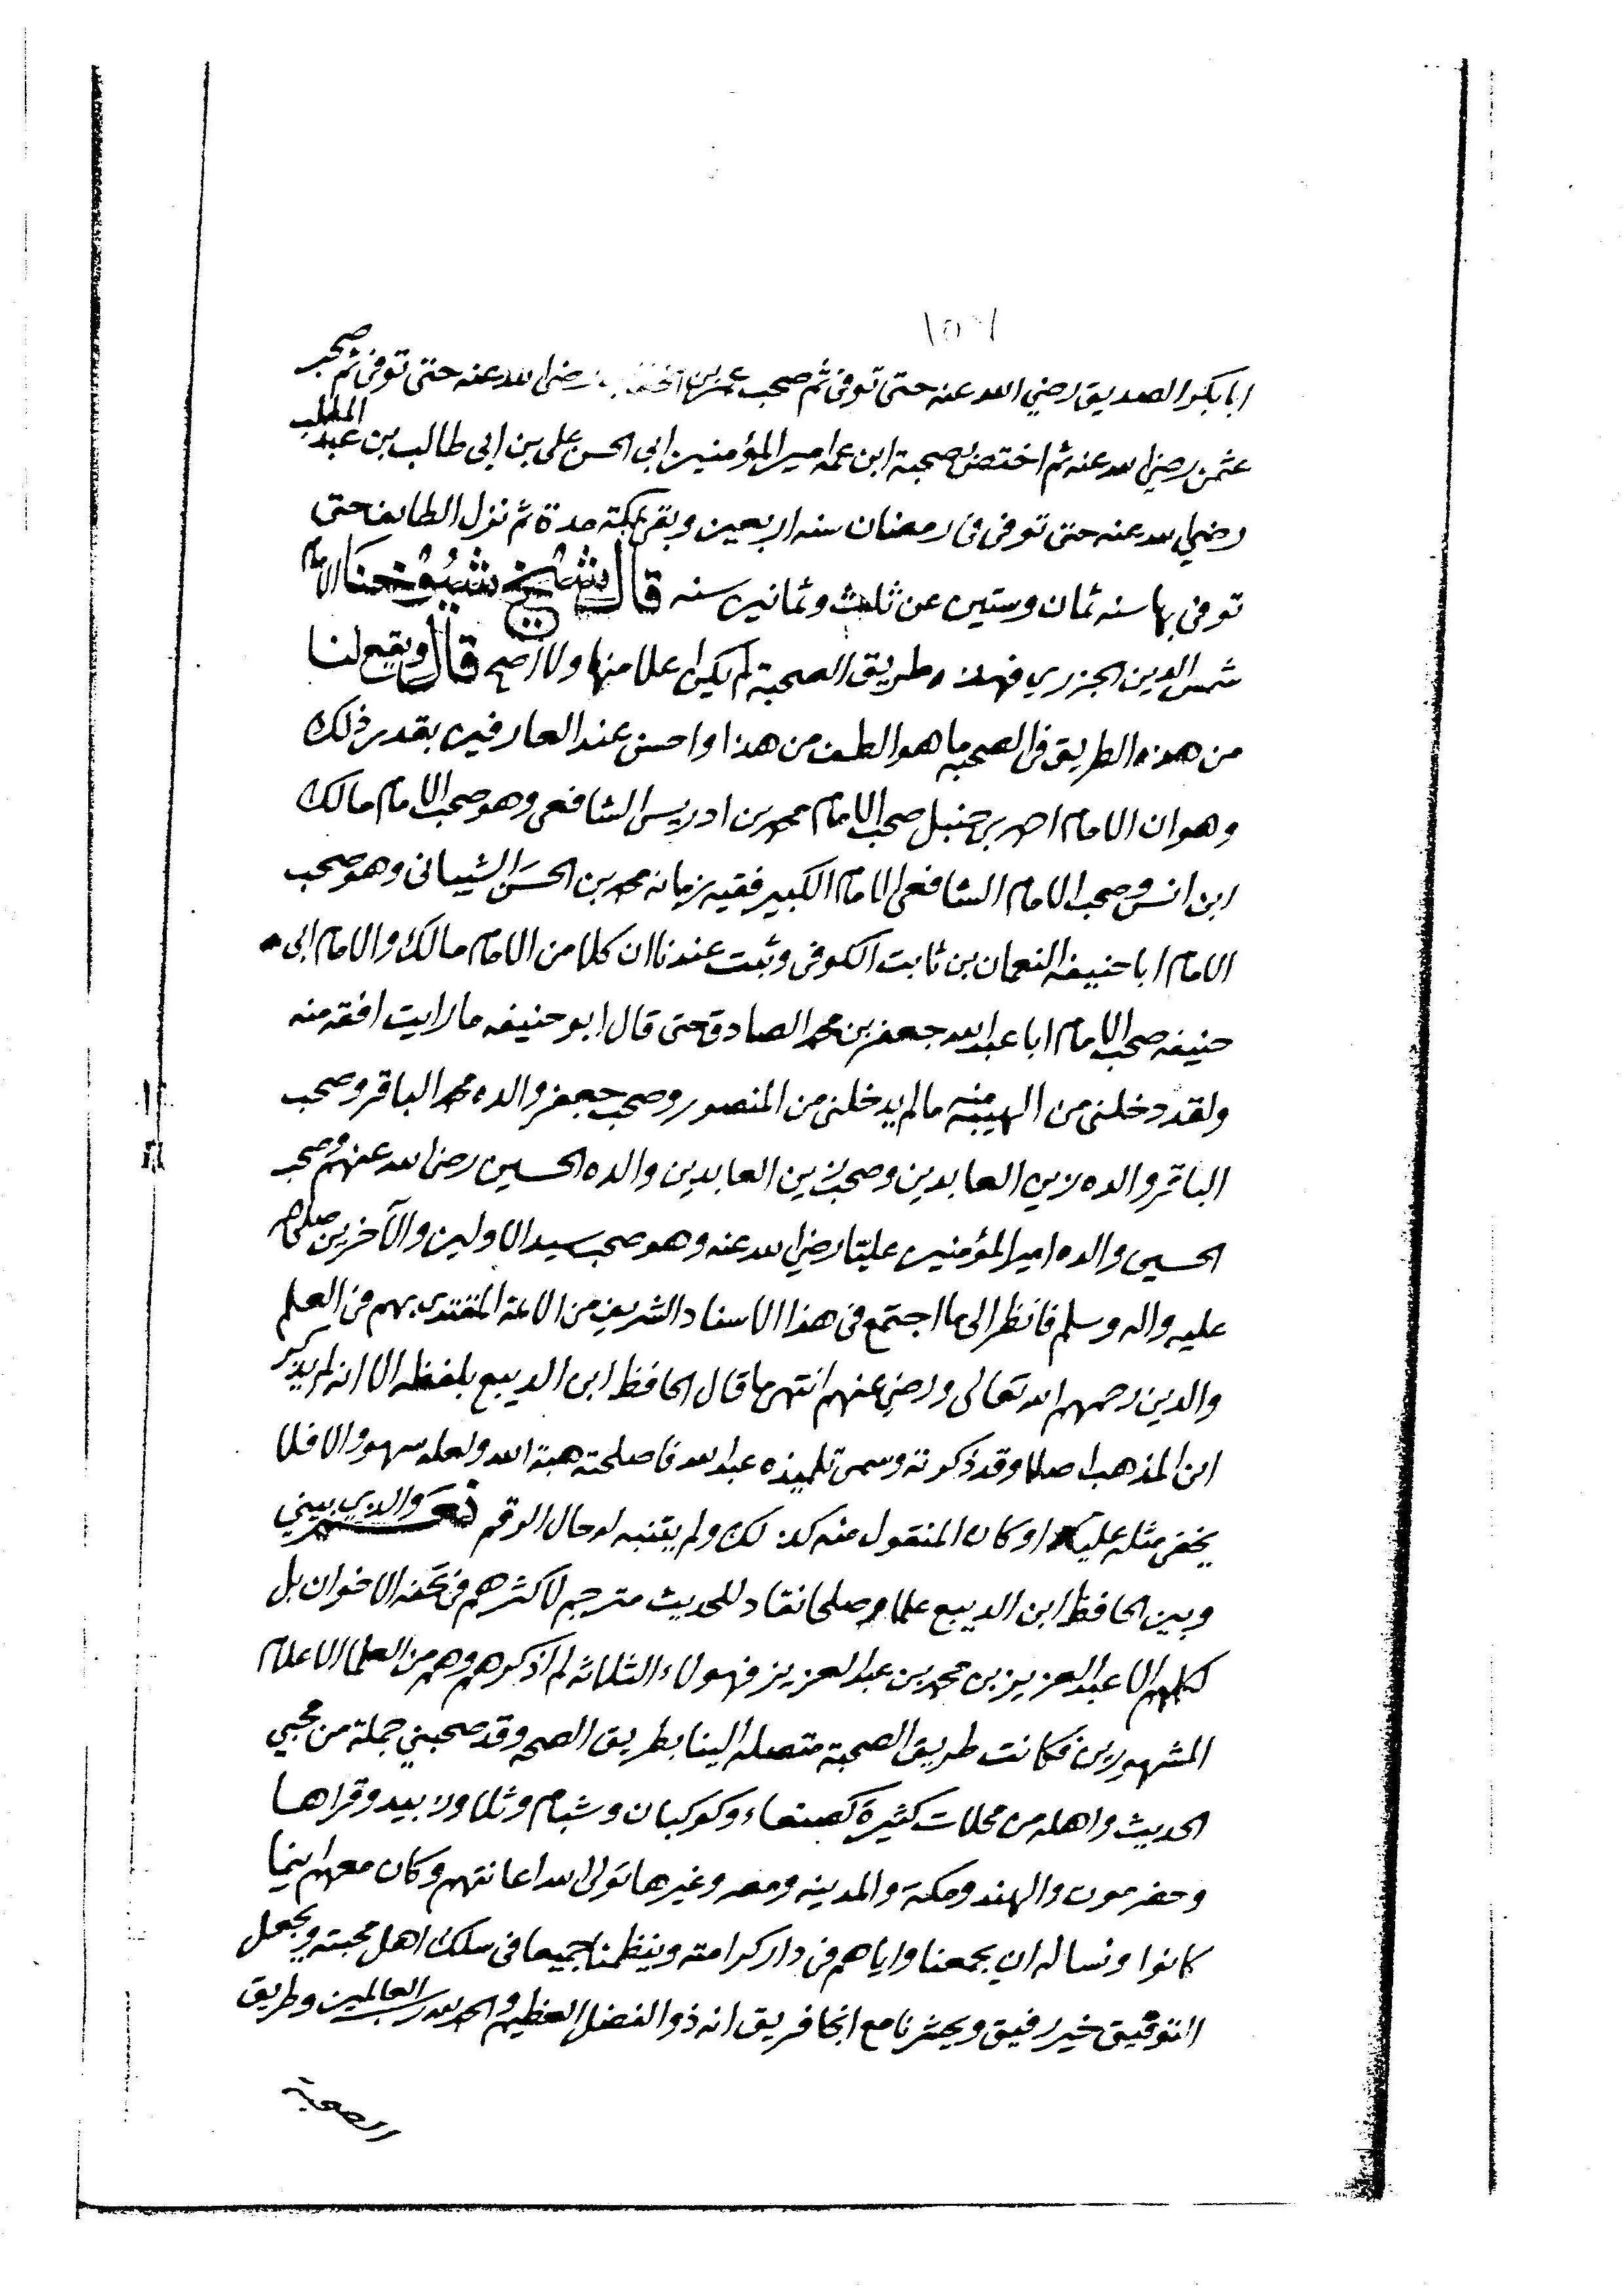 ١٥٦
ابا بكر الصديق رضي الله عنه حتى توفى ثم صحب عمر بن رضي الله عنه حتى توفى ثم صحب
عثمن رضي الله عنه ثم اختص بصحبة ابن عمه امير المؤمنين ابى الحسن على بن ابى طالب بن عبد المطلب
رضي الله عنه حتى توفى فى رمضان سنه اربعين وبقى بمكة مدة ثم نزل الطايف حتى
توفى بها سنه ثمان وستين عن ثلث وثمانين سنه قال شيخ شيوخنا الامام
شمس الدين الجزري فهذه طريق الصحبة لم يكن اعلا منها ولا اصح قال ويقع لنا
من هذه الطريق فى الصحبه ما هو الطف من هذا واحسن عند العارفين بقدر ذلك
وهو ان الامام احمد بن حنبل صحب الامام محمد بن ادريس الشافعى وهو صحب الامام مالك
ابن انس وصحب الامام الشافعى الامام الكبير فقيه زمانه محمد بن الحسن الشيبانى وهو صحب
الامام ابا حنيفه النعمان بن ثابت الكوفى وثبت عندنا ان كلا من الامام مالك والامام ابى
حنيفه صحب الامام ابا عبد الله جعفر بن محمد الصادق حتى قال ابو حنيفه ما رايت افقه منه
ولقد دخلنى من الهيبة منه ما لم يدخلنى من المنصور وصحب جعفر والده محمد الباقر وصحب
الباقر والده زين العابدين وصحب زين العابدين والده الحسين رضى الله عنهم وصحب
الحسين والده امير المؤمنين عليّا رضي الله عنه وهو صحب سيد الاولين والآخرين صلى الله
عليه واله وسلم فانظر الى ما اجتمع فى هذا الاسناد الشريف من الائمة المقتدى بهم فى العلم
والدين رحمهم الله تعالى ورضي عنهم انتهى ما قال الحافظ ابن الديبع بلفظه الا انه لم يذكر
ابن المذهب اصلا وقد ذكرته وسمى تلميذه عبد الله فاصلحته هبة الله ولعله سهو والا فلا
يخفى مثله عليه او كان المنقول منه كذلك ولم يتنبه له حال الرقم نعم والذي بيني
وبين الحافظ ابن الديبع علما وصلحا نقاد للحديث مترجم لاكثرهم فى تحفه الاخوان بل
كلهم الا عبد العزيز بن محمد بن عبد العزيز فهولاء الثلاثه لم اذكرهم وهم من العلما الاعلام
المشهورين فكانت طريق الصحبة متصله الينا بطريق الصحه وقد صحبني جملة من محبي
الحديث واهله من محلات كثيرة كصنعاء وكوكبان وشبام وثلا وزبيد وقراها
وحضرموت والهند ومكة والمدينه ومصر وغيرها تولى الله اعانتهم وكان معهم اينما
كانوا ونساله ان يجمعنا واياهم فى دار كرامته وينظمنا جميعا فى سلك اهل محبته ويجعل
التوفيق خير رفيق ويحشرنا مع انجا فريق انه ذو الفضل العظيم والحمد لله رب العالمين وطريق
الصحبة